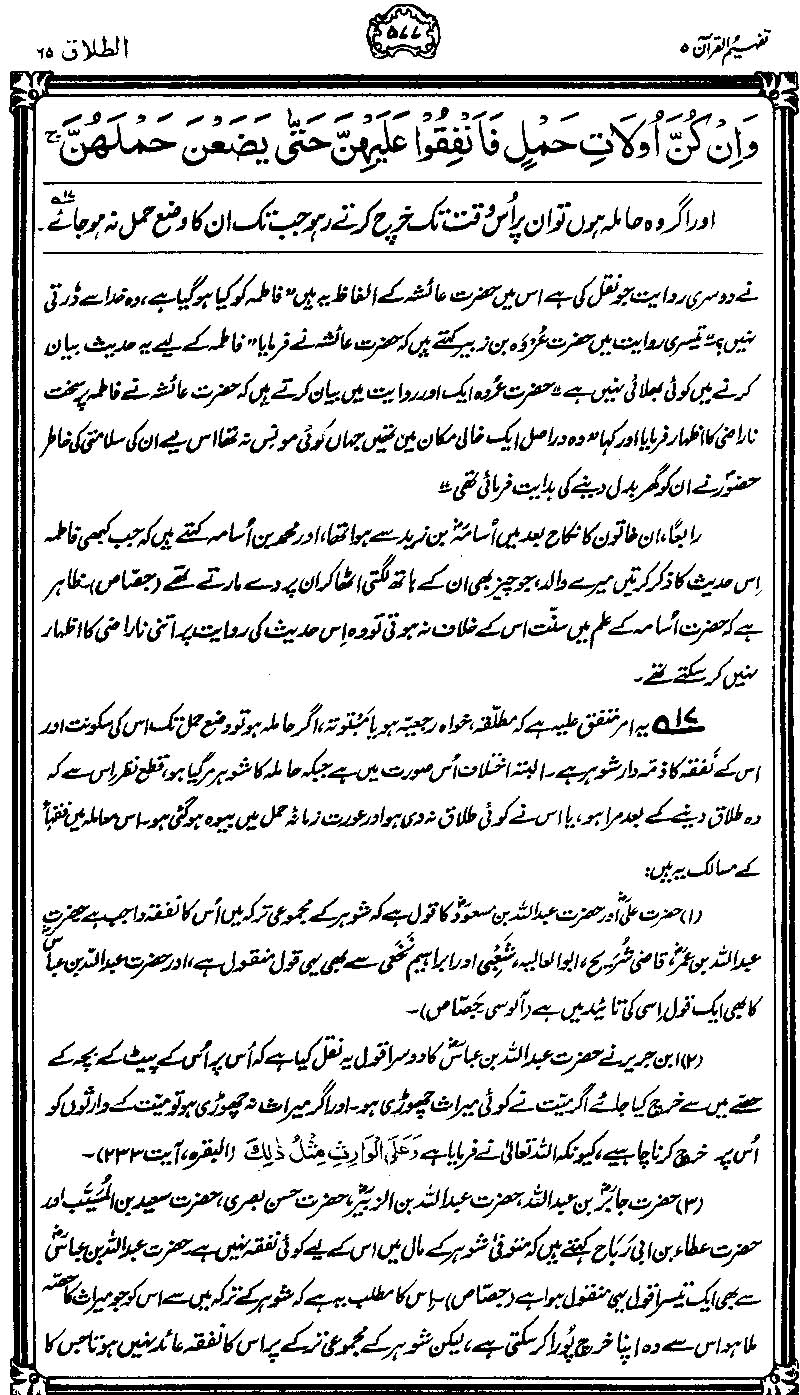 تفہیم القرآن ۵
۵۷۷
الطلاق ۶۵
وَاِنْ كُنَّ اُولَاتِ حَمْلٍ فَاَنْفِقُوْا عَلَيْهِنَّ حَتّٰى يَضَعْنَ حَمْلَهُنَّ ج
اور اگر وہ حاملہ ہوں تو ان پر اُس وقت تک خرچ کرتے رہو جب تک ان کا وضع حمل نہ ہو جائے ۱۷؎۔
نے دوسری روایت جو نقل کی ہے اس میں حضرت عائشہ کے الفاظ یہ ہیں “فاطمہ کو کیا ہو گیا ہے، وہ خدا سے ڈرتی
نہیں؟” تیسری روایت میں حضرت عُروہ بن زبیر کہتے ہیں کہ حضرت عائشہ نے فرمایا “فاطمہ کے لیے یہ حدیث بیان
کرنے میں کوئی بھلائی نہیں ہے” حضرت عروہ ایک اور روایت میں بیان کرتے ہیں کہ حضرت عائشہ نے فاطمہ پر سخت
ناراضی کا اظہار فرمایا اور کہا “وہ دراصل ایک خالی مکان میں تھیں جہاں کوئی مونس نہ تھا اس لیے ان کی سلامتی کی خاطر
حضورؐ نے ان کو گھر بدل دینے کی ہدایت فرمائی تھی”
رابعًا، ان خاتون کا نکاح بعد میں اُسامہؓ بن زید سے ہوا تھا، اور محمد بن اُسامہ کہتے ہیں کہ جب کبھی فاطمہ
اِس حدیث کا ذکر کرتیں میرے والد، جو چیز بھی ان کے ہاتھ لگتی اٹھا کر ان پر دے مارتے تھے (جصّاص) ظاہر
ہے کہ حضرت اُسامہ کے علم میں سنّت اس کے خلاف نہ ہوتی تو وہ اِس حدیث کی روایت پر اتنی ناراضی کا اظہار
نہیں کر سکتے تھے۔
۱۷؎ یہ امر متفق علیہ ہے کہ مطلّقہ، خواہ رجعیّہ ہو یا مَبتوتہ، اگر حاملہ ہو تو وضع حمل تک اس کی سکونت اور
اس کے نَفقہ کا ذمہ دار شوہر ہے۔ البتہ اختلاف اُس صورت میں ہے جبکہ حاملہ کا شوہر مر گیا ہو، قطع نظر اس سے کہ
وہ طلاق دینے کے بعد مرا ہو، یا اس نے کوئی طلاق نہ دی ہو اور عورت زمانۂ حمل میں بیوہ ہو گئی ہو۔ اس معاملہ میں فقہاء
کے مسالک یہ ہیں:
(۱) حضرت علیؓ اور حضرت عبداللہ بن مسعودؓ کا قول ہے کہ شوہر کے مجموعی ترکہ میں اُس کا نفقہ واجب ہے حضرت
عبداللہ بن عمرؓ، قاضی شُریح، ابوالعالیہ، شَعبی اور ابراہیم نَخَعی سے بھی یہی قول منقول ہے، اور حضرت عبداللہ بن عباسؓ
کا بھی ایک قول اِسی کی تائید میں ہے (آلوسی جَصّاص)۔
(۲) ابن جریر نے حضرت عبداللہ بن عباسؓ کا دوسرا قول یہ نقل کیا ہے کہ اُس پر اُس کے پیٹ کے بچہ کے
حصّے میں سے خرچ کیا جائے اگر میّت نے کوئی میراث چھوڑی ہو۔ اور اگر میراث نہ چھوڑی ہو تو میّت کے وارثوں کو
اُس پر خرچ کرنا چاہیے، کیونکہ اللہ تعالیٰ نے فرمایا ہے وَعَلَى الْوَارِثِ مِثْلُ ذٰلِكَ (البقرہ، آیت ۲۳۳)۔
(۳) حضرت جابرؓ بن عبداللہ، حضرت عبداللہ بن الزبیرؓ، حضرت حسن بصری، حضرت سعید بن المُسَیَّب اور
حضرت عطاء بن ابی رَبَاح کہتے ہیں کہ متوفّیٰ شوہر کے مال میں اس کے لیے کوئی نفقہ نہیں ہے۔ حضرت عبداللہ بن عباسؓ
سے بھی ایک تیسرا قول یہی منقول ہوا ہے (جصّاص)۔ اِس کا مطلب یہ ہے کہ شوہر کے ترکہ میں سے اس کو جو میراث کا حصّہ
ملا ہو اس سے وہ اپنا خرچ پُورا کر سکتی ہے، لیکن شوہر کے مجموعی ترکے پر اس کا نفقہ عائد نہیں ہوتا جس کا